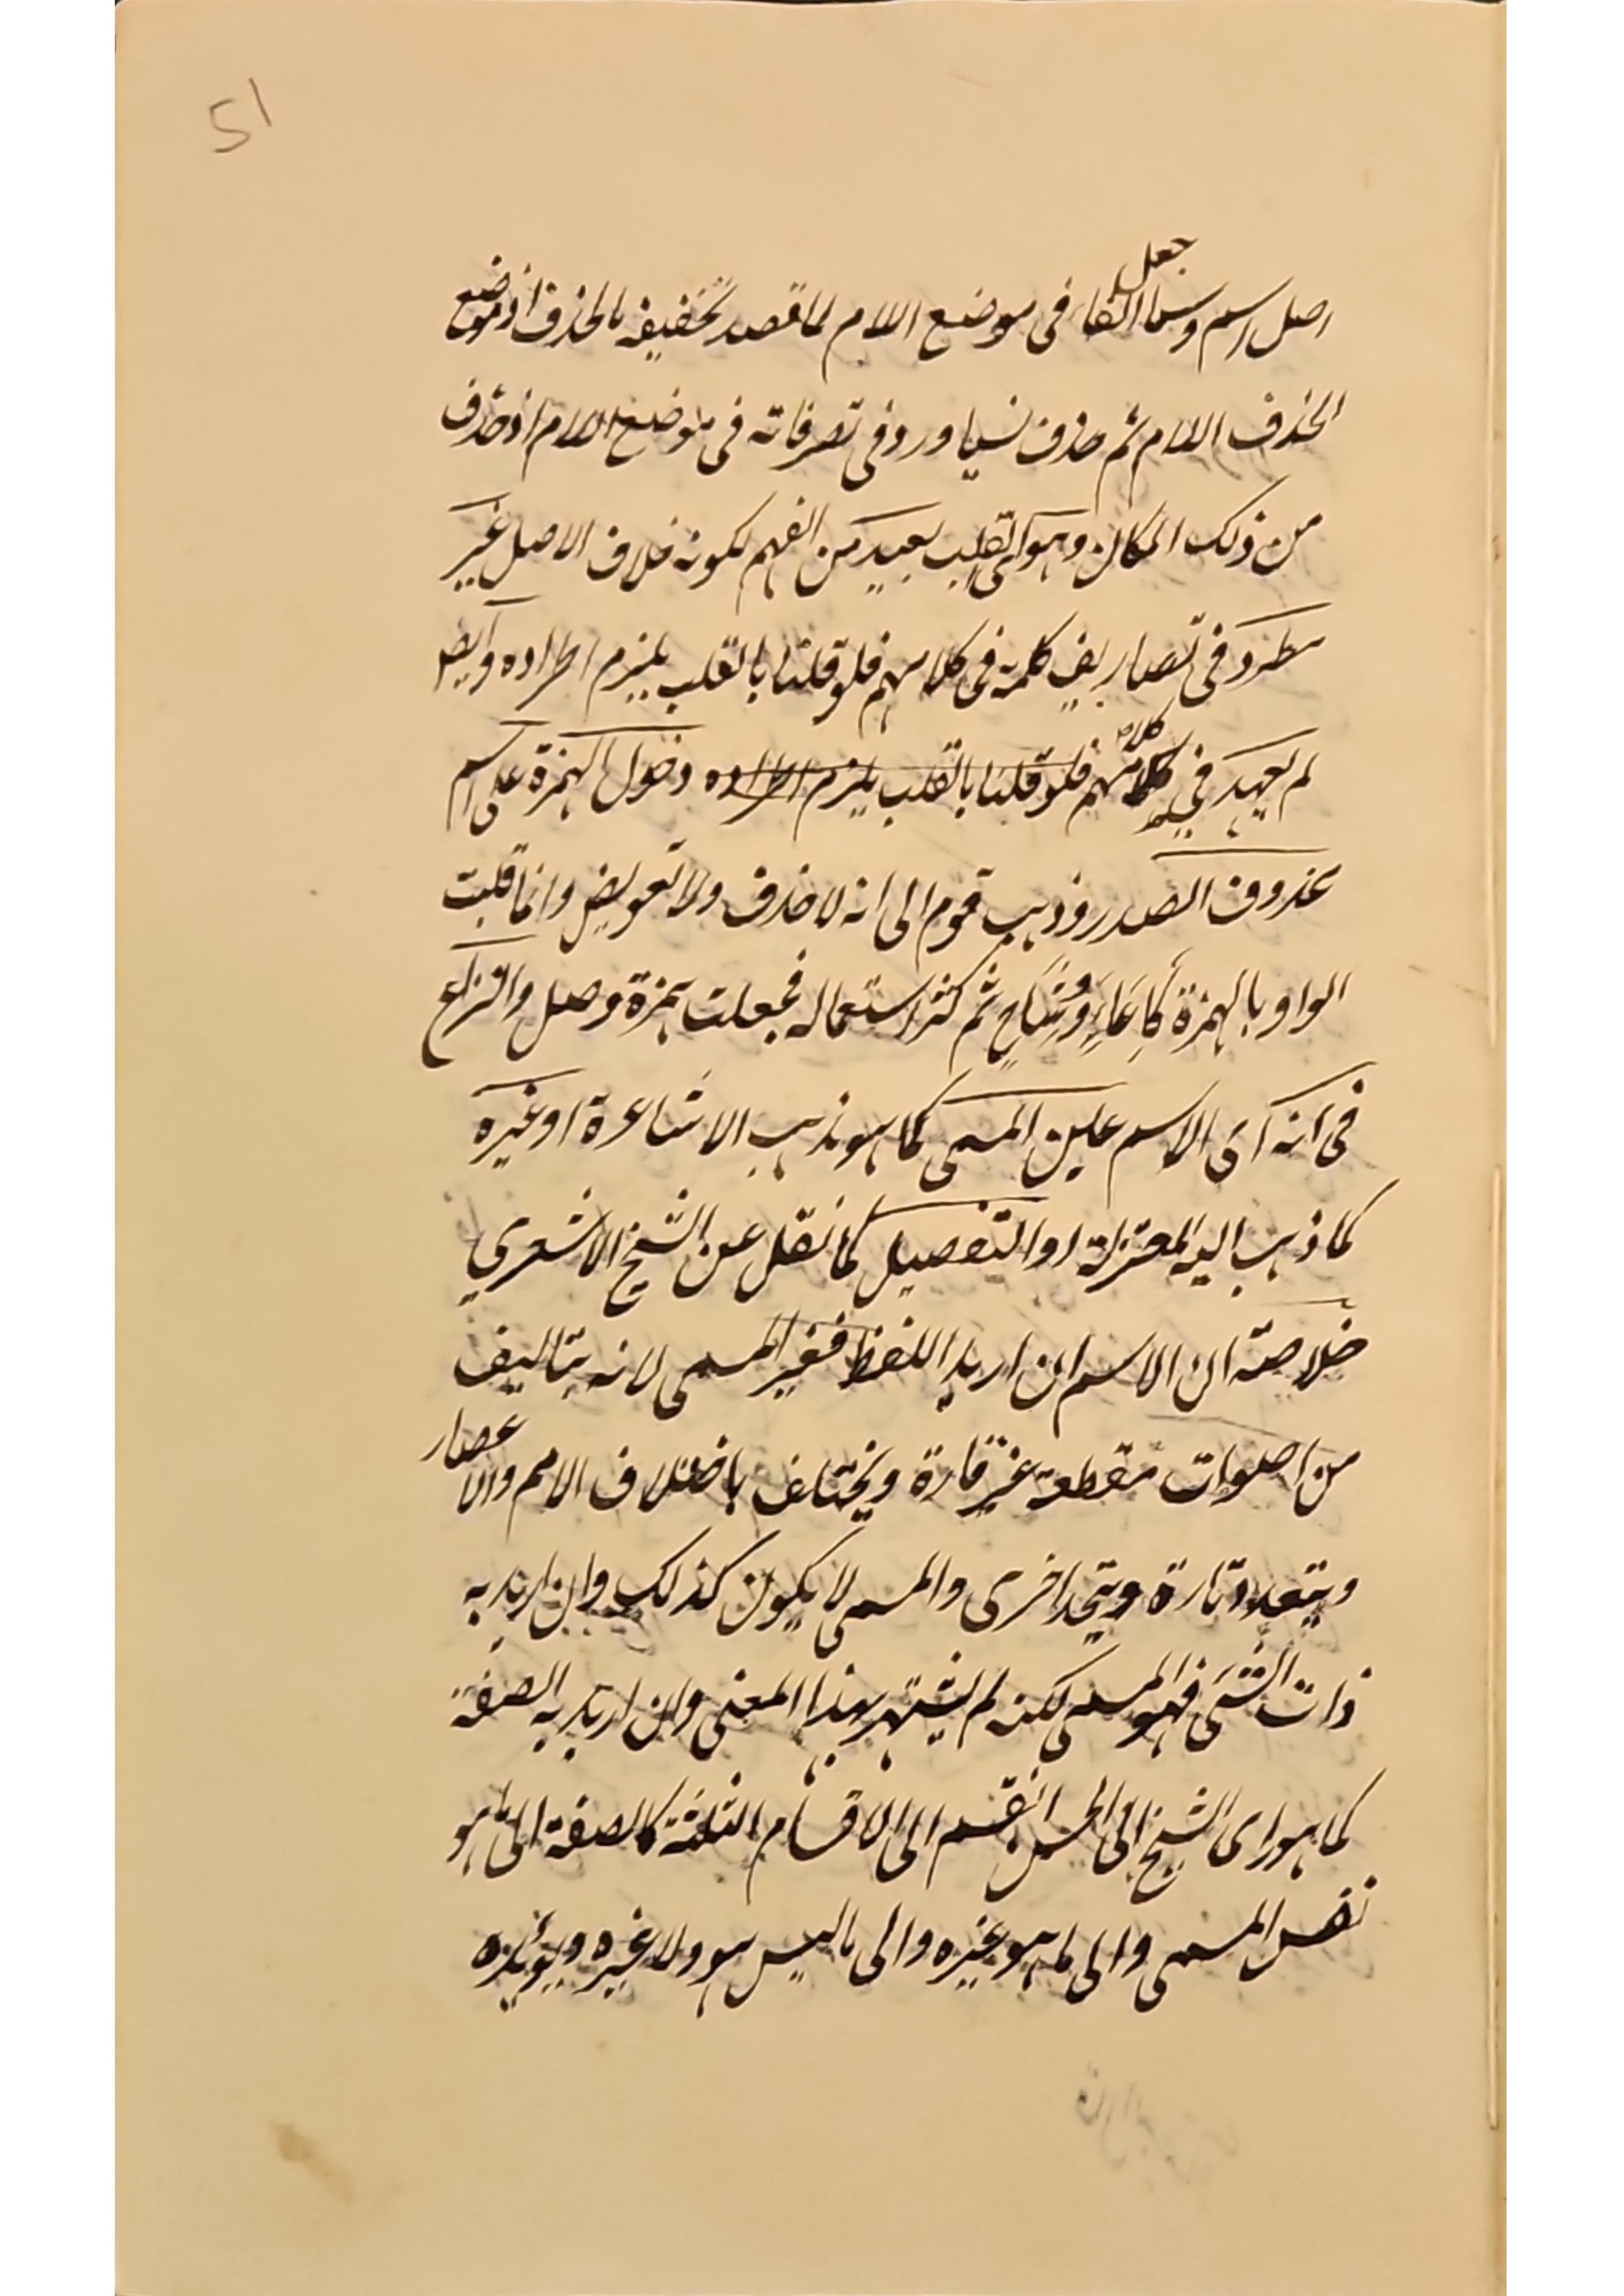 51
جعل
اصل اسم وسما الفاء فى موضع اللام لما قصد تخفيفه بالحذف اذ موضع
الحذف اللام ثم حذف نسيا ورد فى تصرفاته فى موضع اللام اذ حذف
من ذلك المكان وهو اى القلب بعيد من الفهم لكونه خلاف الاصل غير
مطرد فى تصاريف كلمة فى كلامهم فلو قلنا بالقلب يلزم اطراده وايضا
لم يعهد في كلامهم فلو قلنا بالقلب يلزم اطراده دخول الهمزة على اسم
محذوف الصدر وذهب قوم الى انه لا حذف ولا تعويض وانما قلبت
الواو بالهمزة كاِعَاءٍ وِشَاحٍ ثم كثر استعماله فجعلت همزة وصل والنزاع
فى انه اى الاسم عين المسمى كما هو مذهب الاشاعرة او غيره
كما ذهب اليه المعتزلة او التفصيل كما نقل عن الشيخ الاشعري
خلاصته ان الاسم ان اريد اللفظ فغير المسمى لانه يتاليف
من اصوات مقطعة غير قارة ويختلف باختلاف الامم والاعصار
ويتعدد تارة ويتحد اخرى والمسمى لا يكون كذلك وان اريد به
ذات الشئى فهو المسمى لكنه لم يشتهر بهذا المعنى وان اريد به الصفة
كما هو راى الشيخ ابى الحسن انقسم الى الاقسام الثلثة كالصفة الى ما هو
نفس المسمى والى ما هو غيره والى ما ليس هو ولا غيره ويؤيده